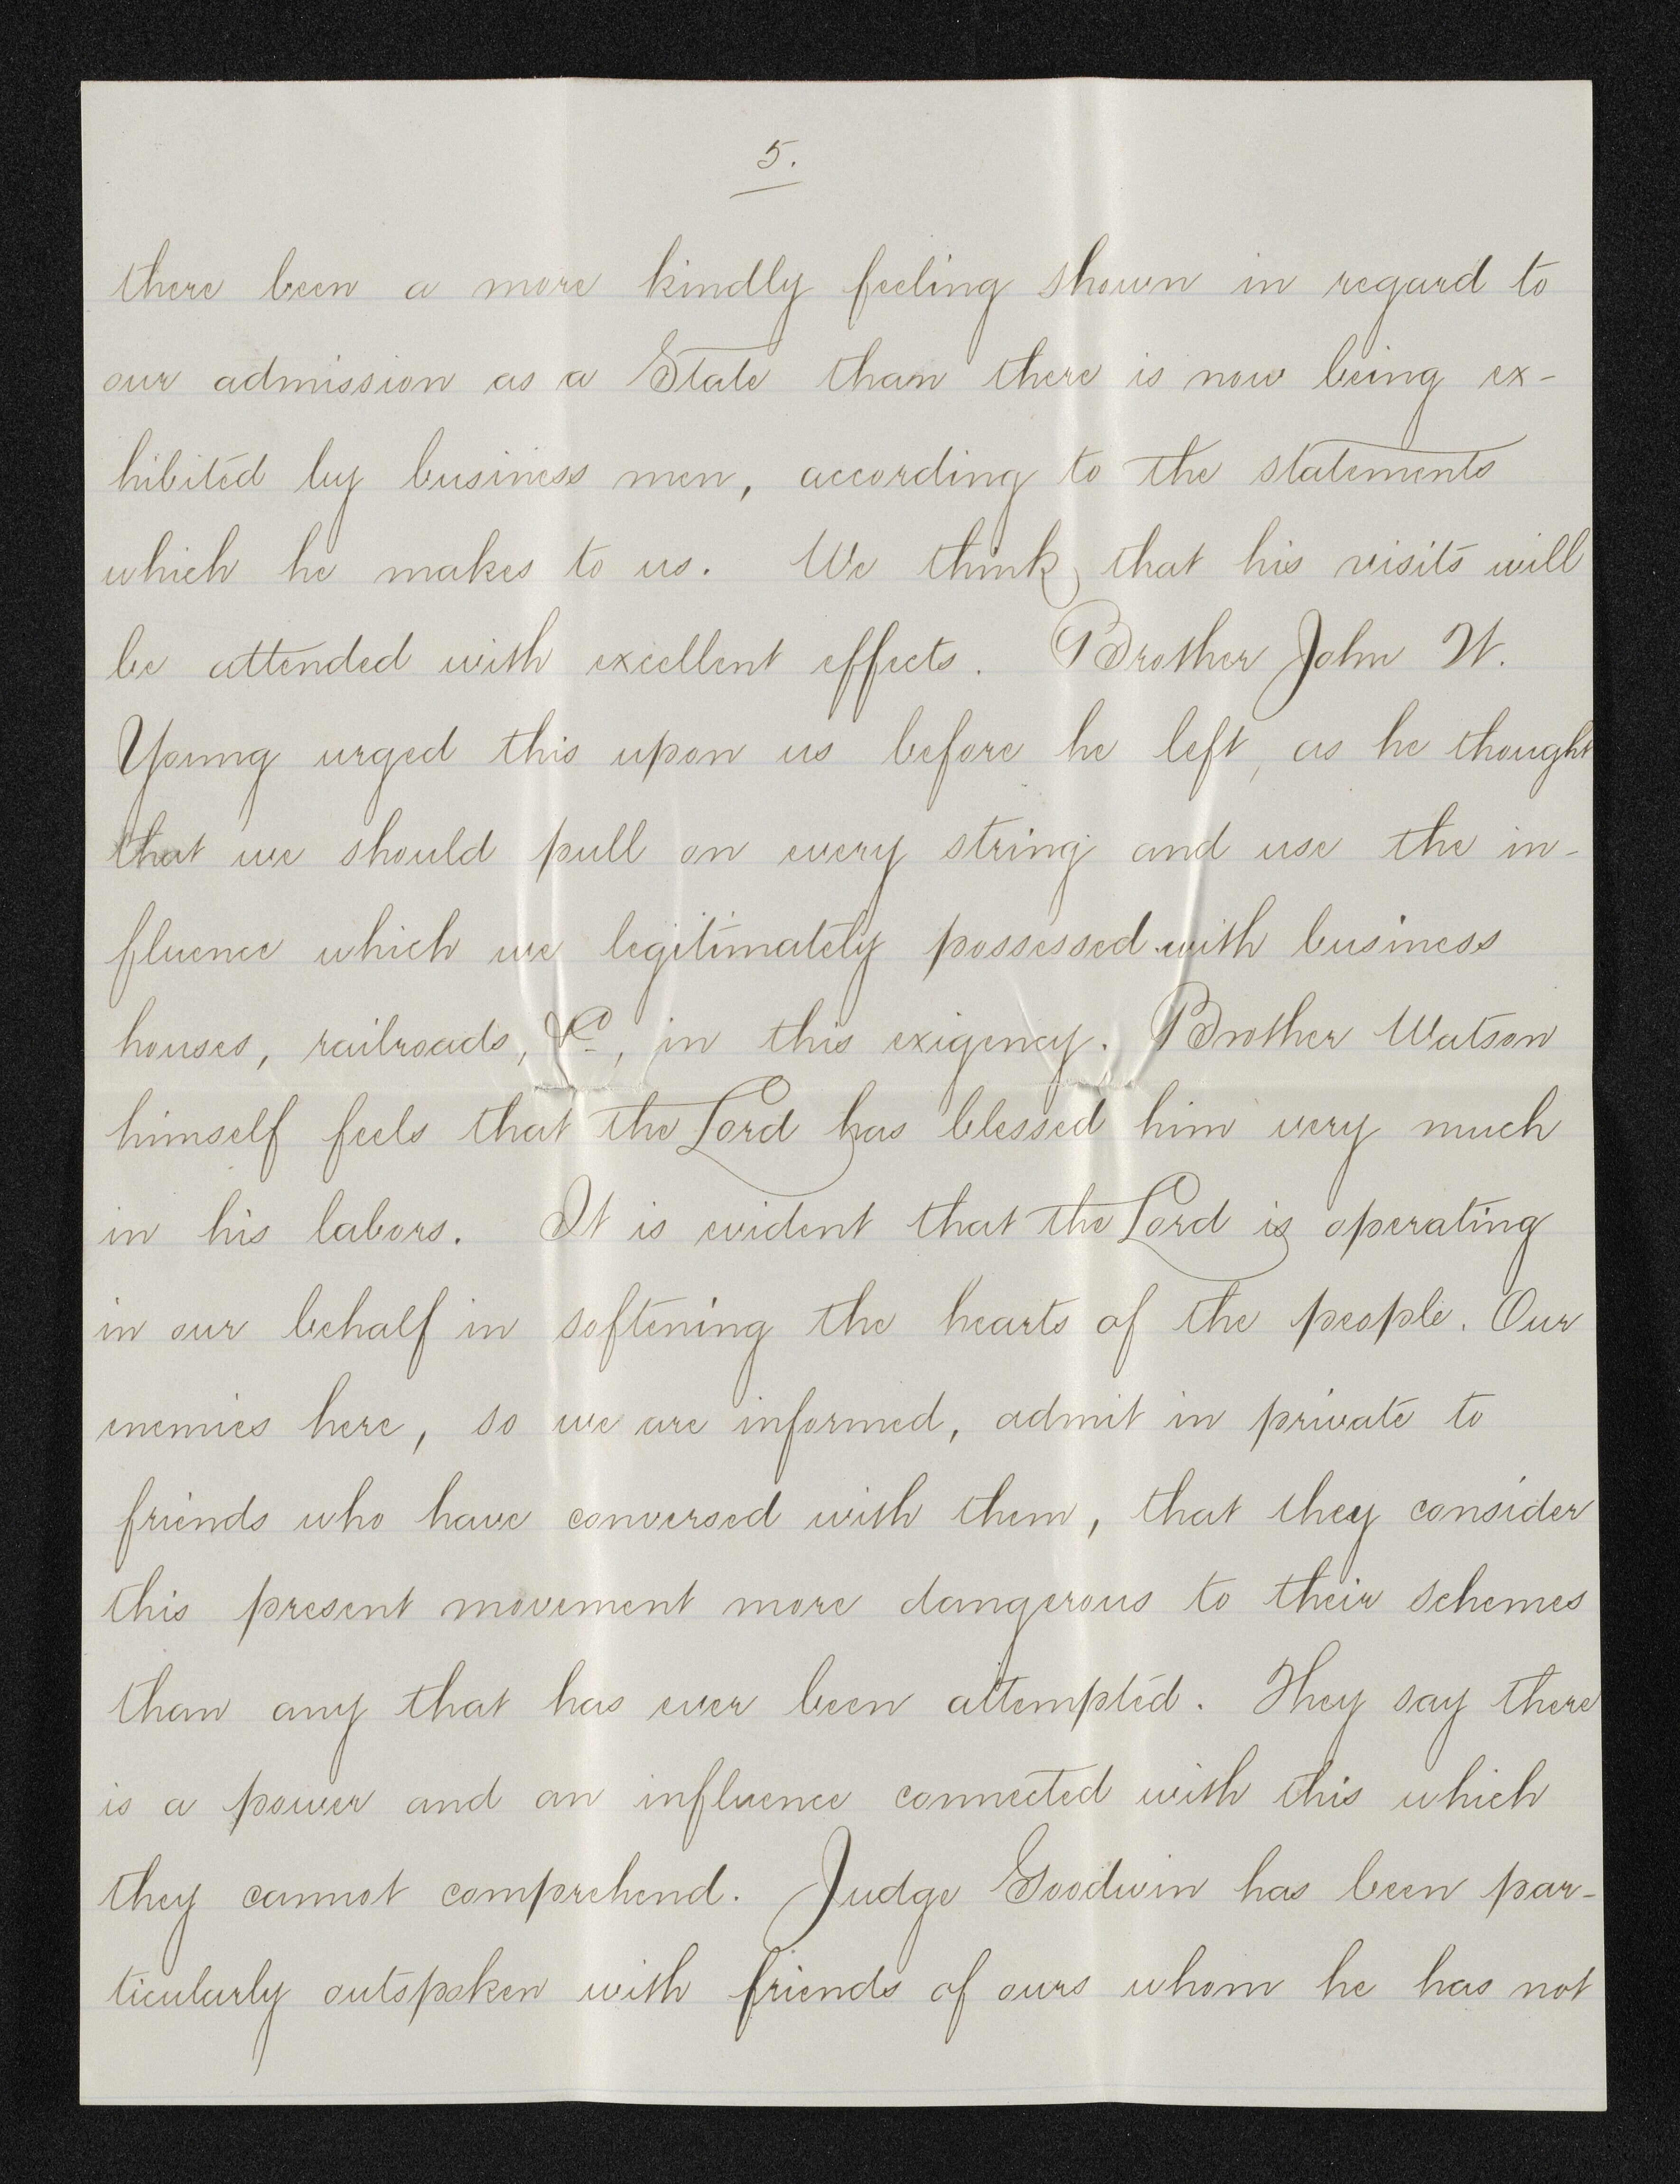 5.
there been a more kindly feeling shown in regard to
our admission as a State than there is now being ex-
hibited by business men, according to the statements
which he makes to us. We think that his visits will
be attended with excellent effects. Brother John W.
Young urged this upon us before he left, as he thought
that we should pull on every string and use the in-
fluence which we legitimately possessed with business
houses, railroads, &c., in this exigency. Brother Watson
himself feels that the Lord has blessed him very much
in his labors. It is evident that the Lord is operating
in our behalf in softening the hearts of the people. Our
enemies here, so we are informed, admit in private to
friends who have conversed with them, that they consider
this present movement more dangerous to their schemes
than any that has ever been attempted. They say there
is a power and an influence connected with this which
they cannot comprehend. Judge Goodwin has been par-
ticularly outspoken with friends of ours whom he has not